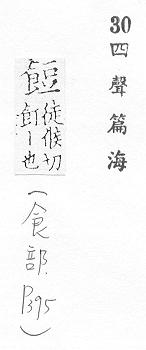 30四聲篇海
餖
徒候切
飣丨也
(食部 P395)